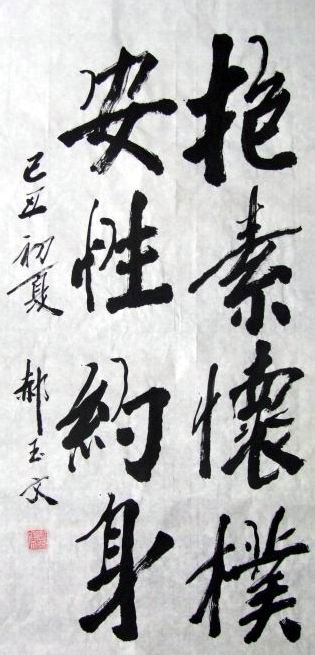 抱素懷樸
安性約身
己丑初夏 郝玉文